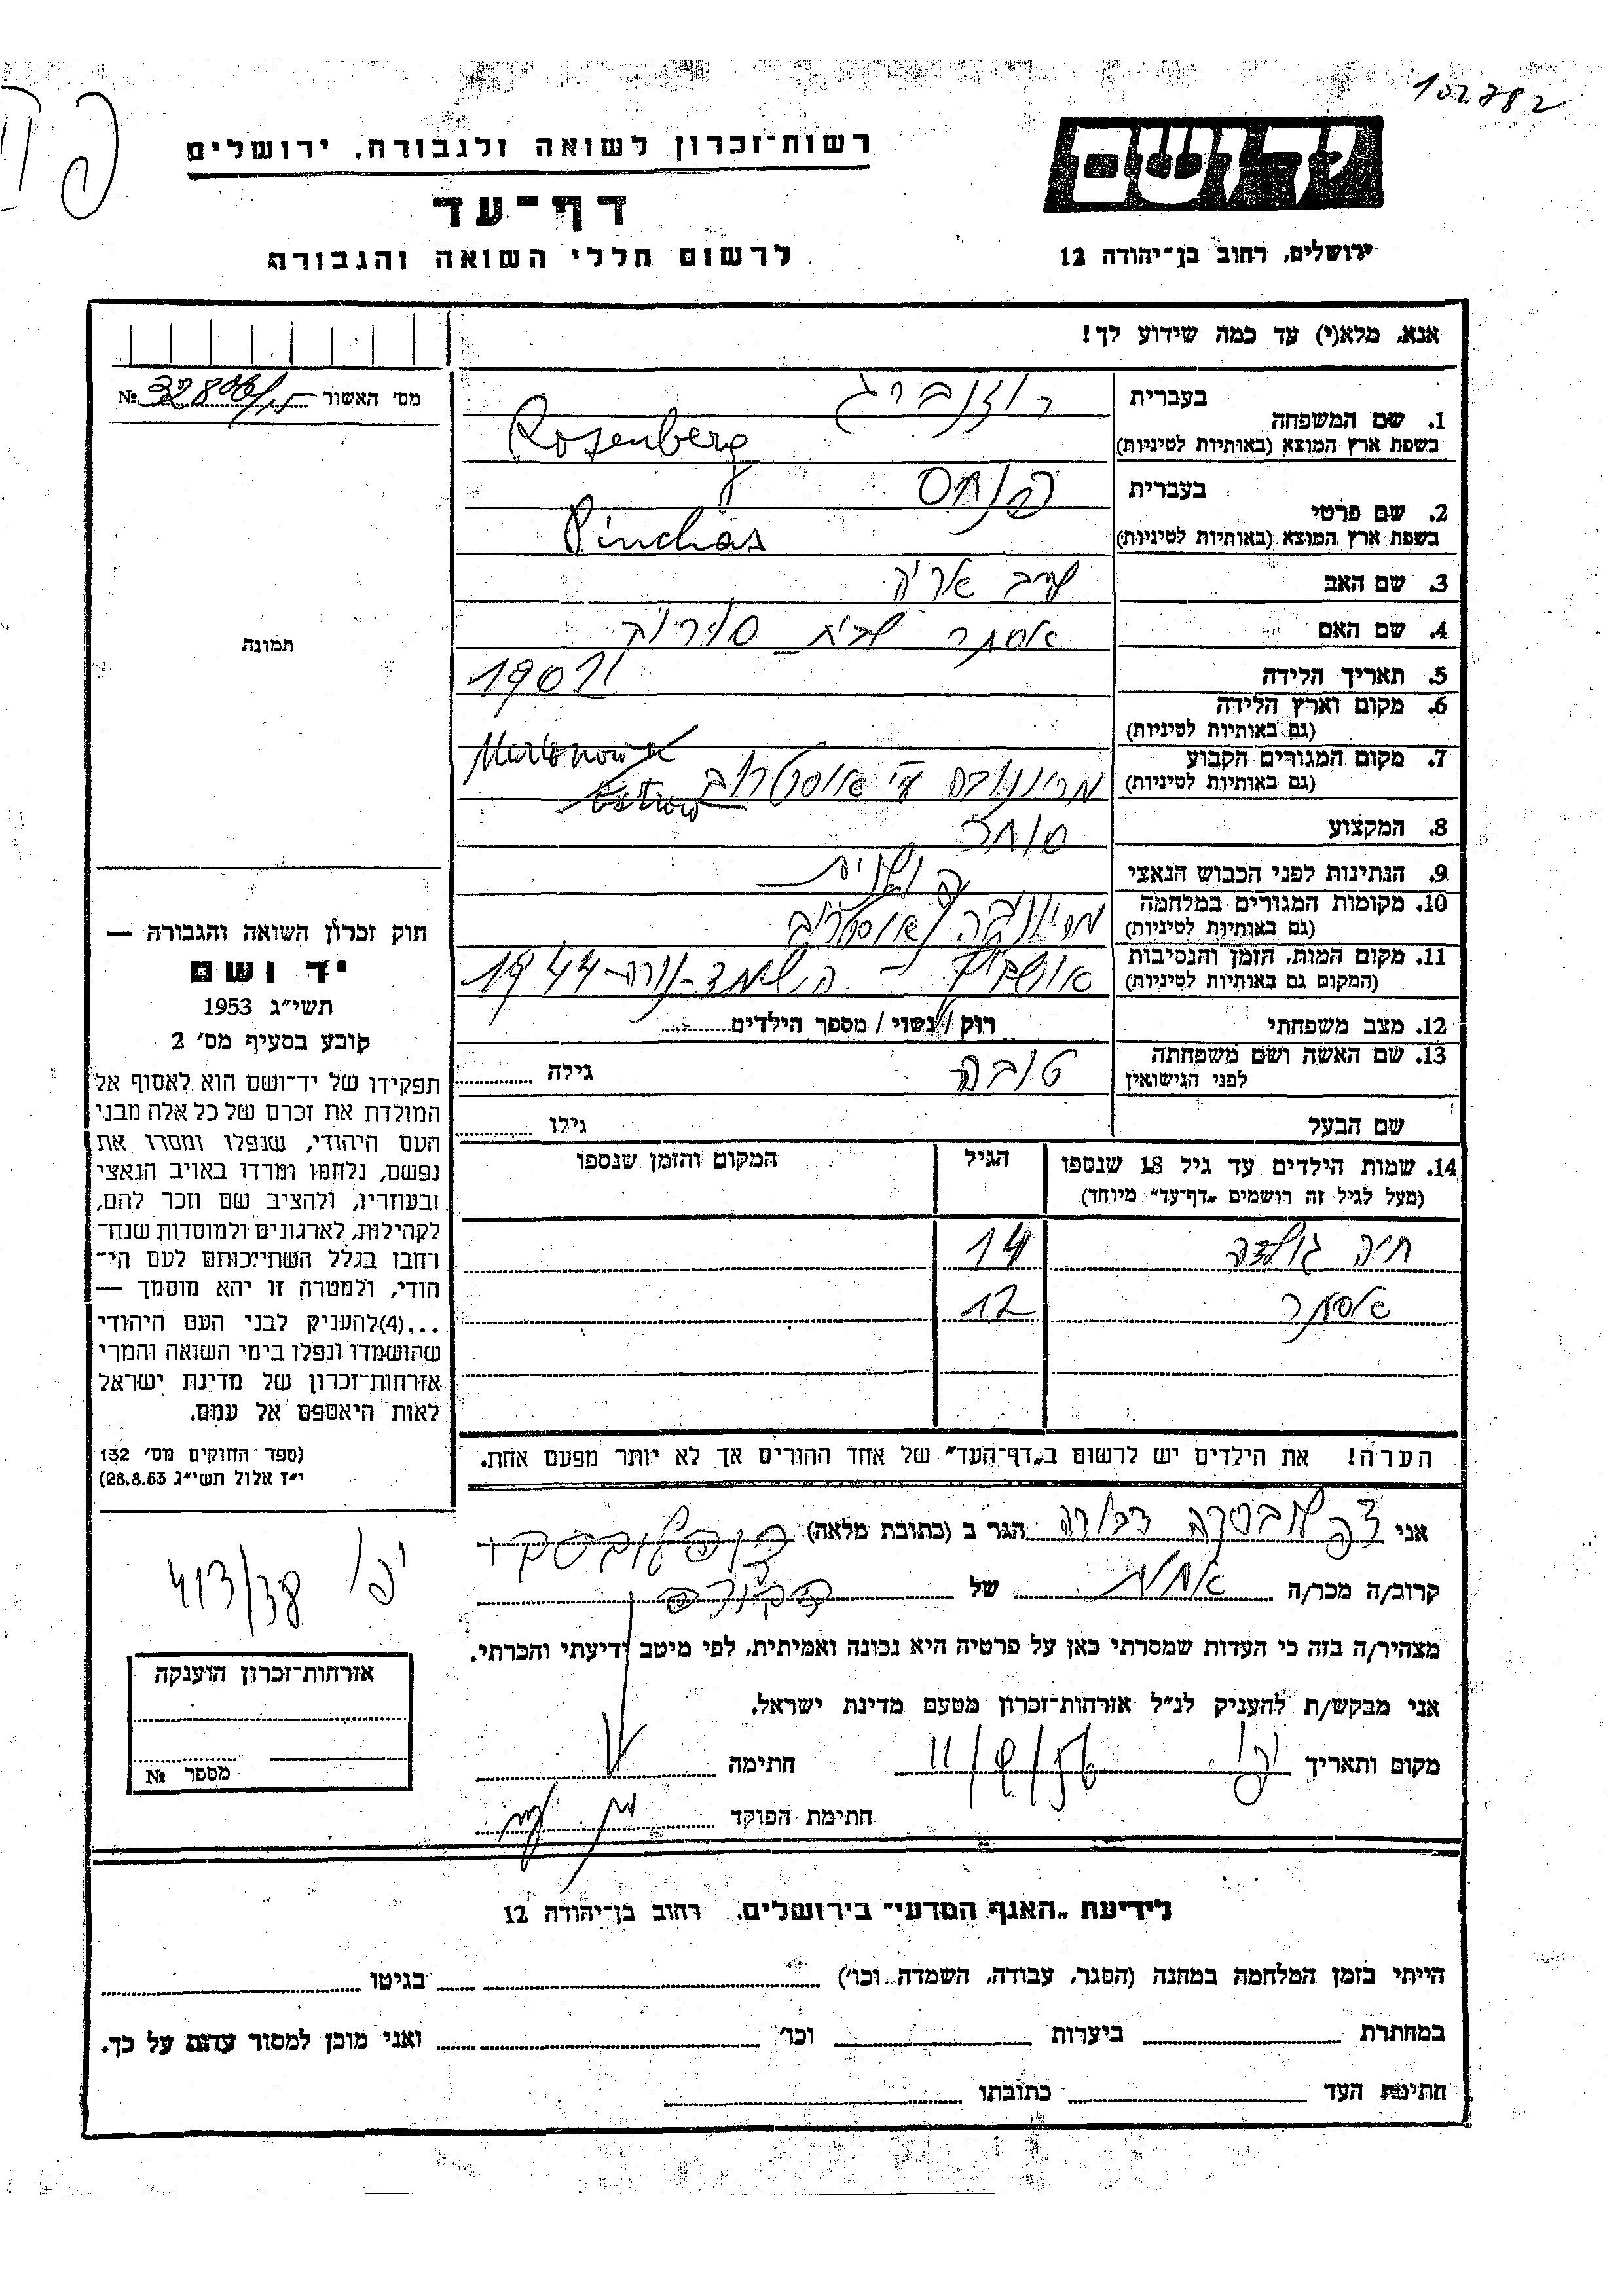 102782
רשות־זכרון לשואה ולגבורה, ירושלים
דף־עד
לרשום חללי השואה והגבורה
ידושם
ירושלים, רחוב בן־יהודה 12
אנא, מלא(י) עד כמה שידוע לך!
מס' האשור №
1. שם המשפחה בעברית רוזנברג
בשפת ארץ המוצא (באותיות לטיניות) Rosenberg
2. שם פרטי בעברית פנחס
בשפת ארץ המוצא (באותיות לטיניות) Pinchas
3. שם האב אריה
4. שם האם אסתר לבית
תמונה
5. תאריך הלידה 1902
6. מקום וארץ הלידה
(גם באותיות לטיניות)
7. מקום המגורים הקבוע
(גם באותיות לטיניות) ע"י אוסטרוב
8. המקצוע סוחר
9. הנתינות לפני הכבוש הנאצי פולנית
10. מקומות המגורים במלחמה
(גם באותיות לטיניות)
11. מקום המות, הזמן והנסיבות
(המקום גם באותיות לטיניות) 1944
12. מצב משפחתי רוק / נשוי / מספר הילדים
13. שם האשה ושם משפחתה
לפני הנישואין טובה גילה
שם הבעל גילו
14. שמות הילדים עד גיל 18 שנספו הגיל המקום והזמן שנספו
(מעל לגיל זה רושמים „דף־עד" מיוחד)
חיה גולדה 14
אסתר 12
הערה! את הילדים יש לרשום ב„דף־העד" של אחד ההורים אך לא יותר מפעם אחת.
חוק זכרון השואה והגבורה —
יד ושם
תשי"ג 1953
קובע בסעיף מס' 2
תפקידו של יד־ושם הוא לאסוף אל
המולדת את זכרם של כל אלה מבני
העם היהודי, שנפלו ומסרו את
נפשם, נלחמו ומרדו באויב הנאצי
ובעוזריו, ולהציב שם וזכר להם,
לקהילות, לארגונים ולמוסדות שנח־
רבו בגלל השתייכותם לעם הי־
הודי, ולמטרה זו יהא מוסמך —
...(4) להעניק לבני העם היהודי
שהושמדו ונפלו בימי השואה והמרי
אזרחות־זכרון של מדינת ישראל
לאות היאספם אל עמם.
(ספר החוקים מס' 132
י"ז אלול תשי"ג 28.8.53)
אני דבורה הגר ב (כתובת מלאה)
קרוב/ה מכר/ה אחות של
מצהיר/ה בזה כי העדות שמסרתי כאן על פרטיה היא נכונה ואמיתית, לפי מיטב ידיעתי והכרתי.
אני מבקש/ת להעניק לנ"ל אזרחות־זכרון מטעם מדינת ישראל.
מקום ותאריך יפו חתימה
חתימת הפוקד
יפו
413/38
אזרחות־זכרון הוענקה
מספר №
לידיעת „האגף המדעי" בירושלים, רחוב בן־יהודה 12
הייתי בזמן המלחמה במחנה (הסגר, עבודה, השמדה וכו') בגיטו
במחתרת ביערות וכו' ואני מוכן למסור עדות על כך.
חתימת העד כתובתו